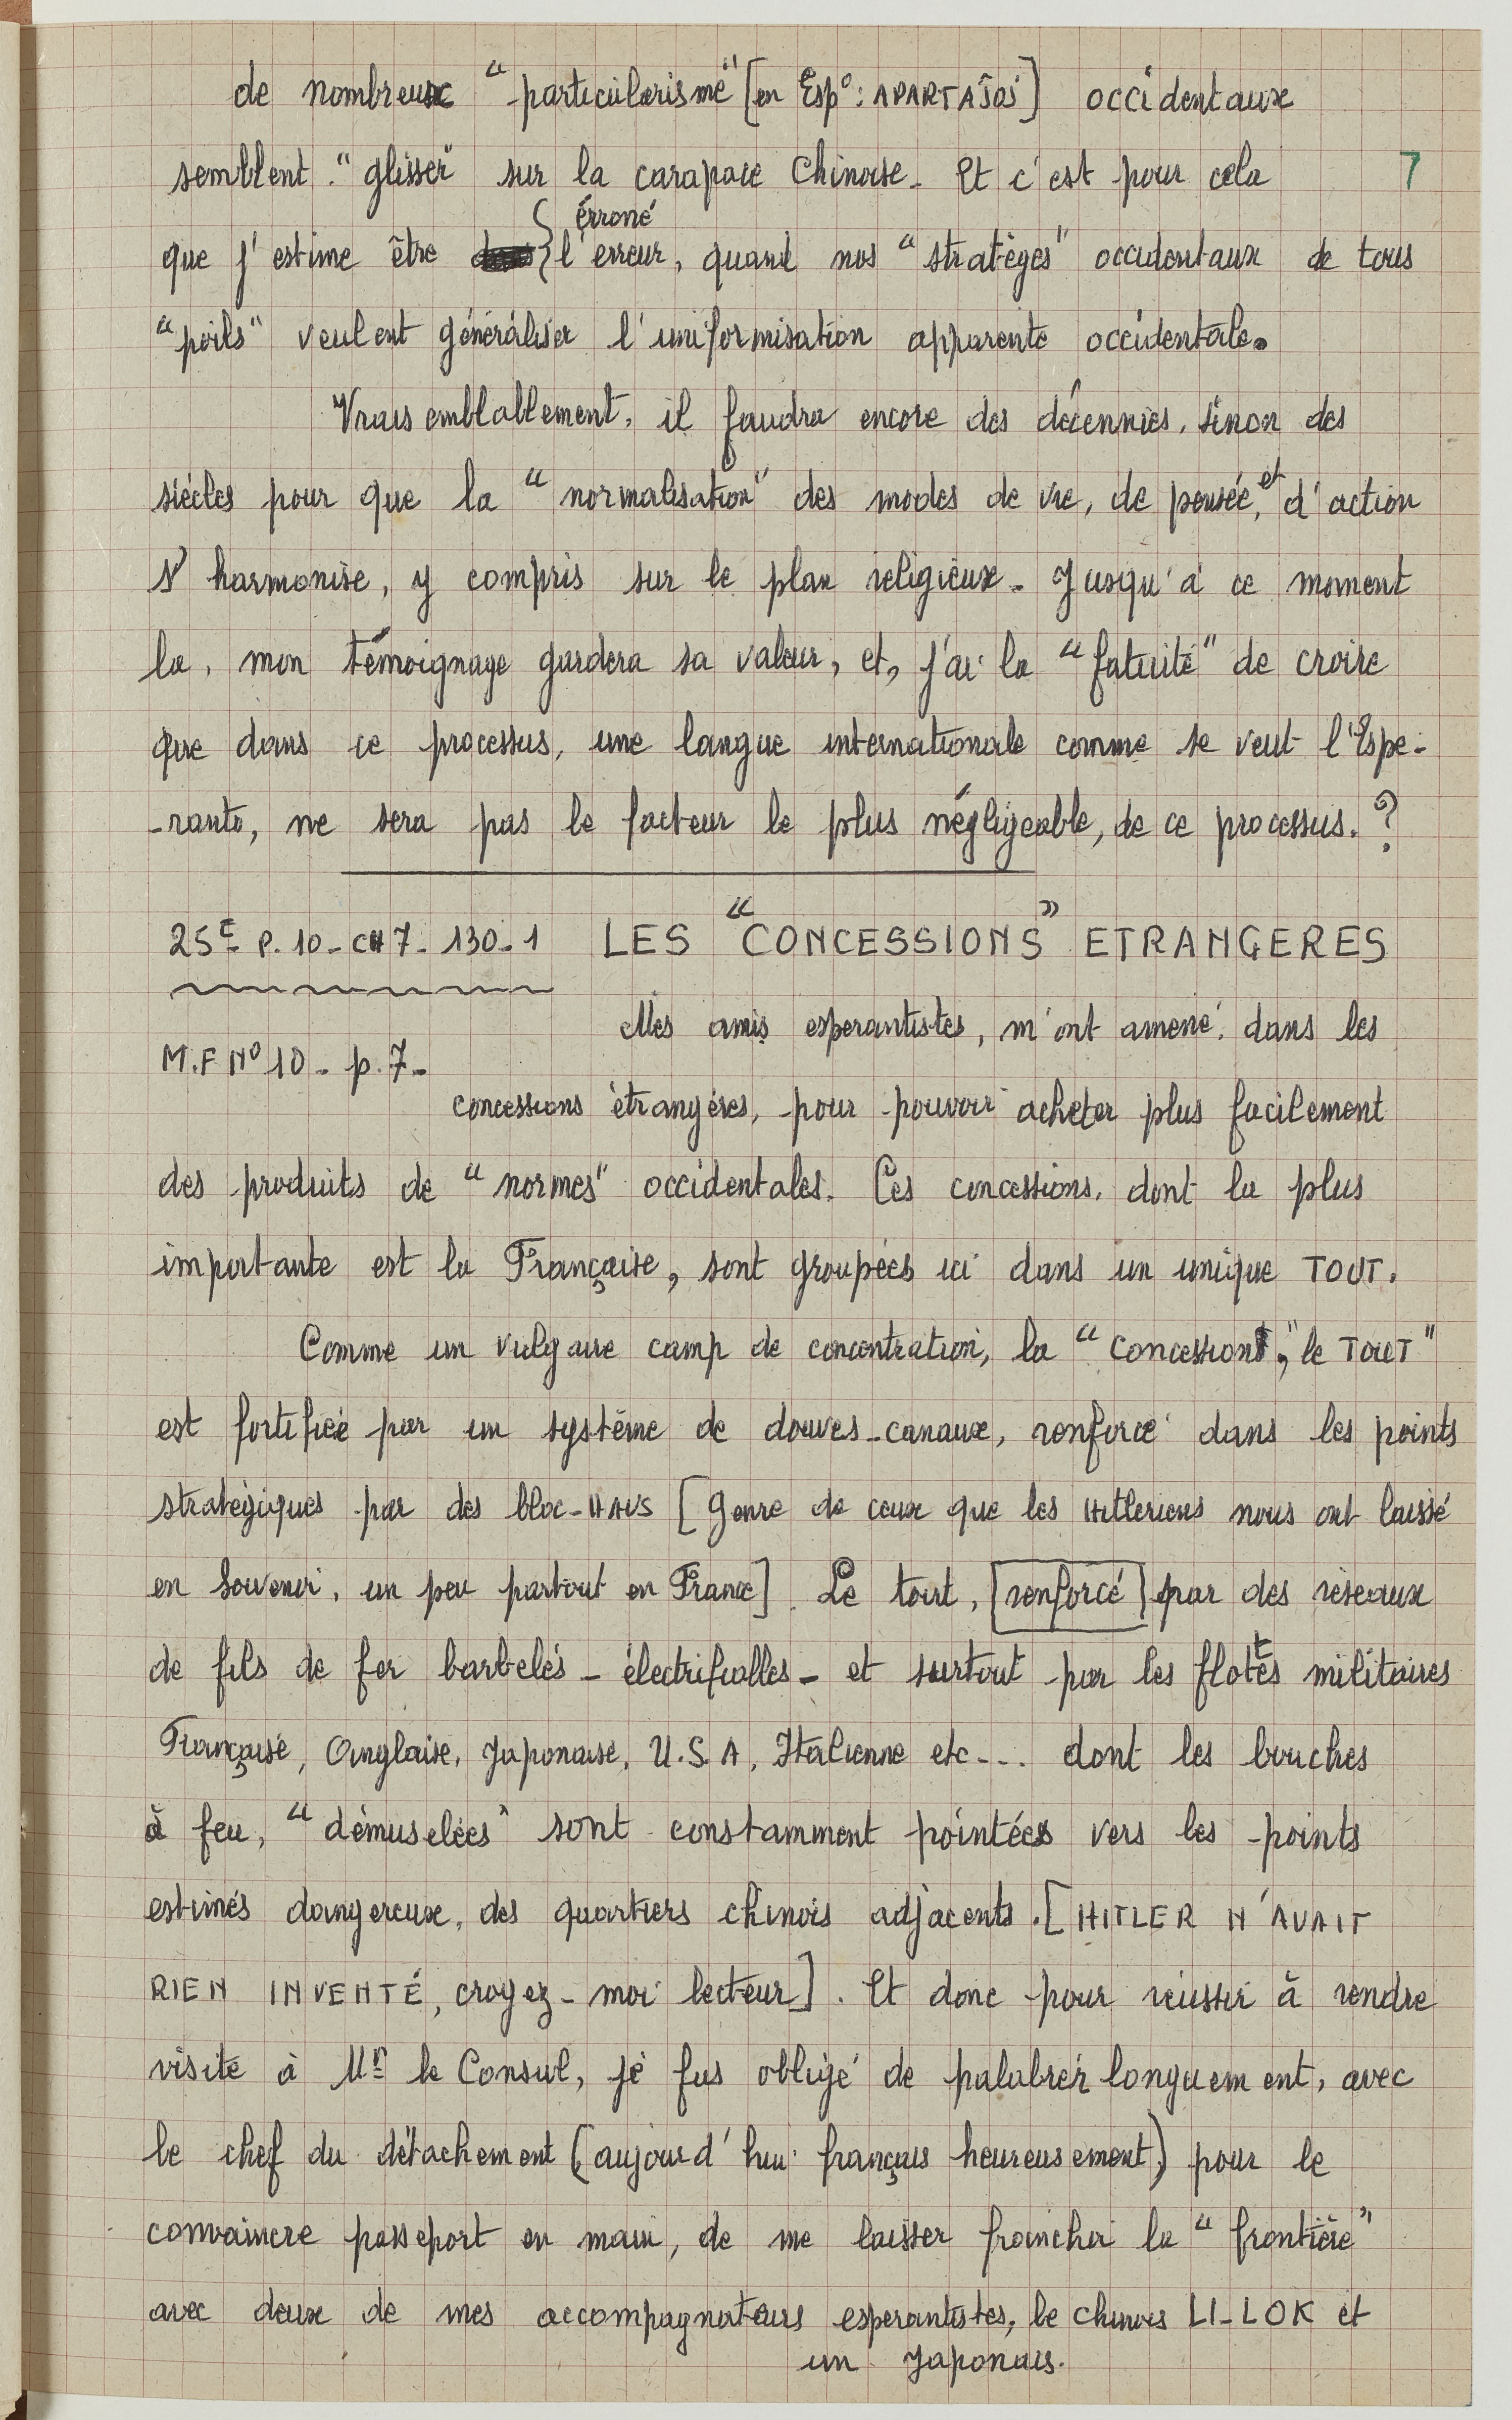 de nombreux "particularisme" [en Espº: APARTAĴOJ] occidentaux
semblent "glisser" sur la carapace Chinoise. Et c'est pour cela
7
érroné
que j'estime être l'erreur, quand nos "stratèges" occidentaux de tous
"poils" veulent généraliser l'uniformisation apparente occidentale.
Vraisemblablement, il faudra encore des décennies, sinon des
siécles pour que la "normalisation" des modes de vie, de pensée, et d'action
s'harmonise, y compris sur le plan religieux. Jusqu'à ce moment
la, mon témoignage gardera sa valeur, et, j'ai la "fatuité" de croire
que dans ce processus, une langue internationale comme se veut l'Espe-
-ranto, ne sera pas le facteur le plus négligeable, de ce processus. ?
25E P.10 - CH7 - 130-1 LES "CONCESSIONS" ETRANGERES
Mes amis esperantistes, m'ont amené dans les
M.F Nº10 - p.7-
concessions étrangéres, pour pouvoir acheter plus facilement
des produits de "normes" occidentales. Ces concessions, dont la plus
importante est la Française, sont groupées ici dans un unique TOUT.
Comme un vulgaire camp de concentration, la "concession", "le TOUT"
est fortifiée par un systéme de douves-canaux, renforcé dans les points
stratégiques par des bloc-HAUS [Genre de ceux que les Hitleriens nous ont laissé
en souvenir, un peu partout en France]. Le tout, [renforcé] par des réseaux
de fils de fer barbelés - électrifiables - et surtout par les flottes militaires
Française, Anglaise, Japonaise, U.S.A, Italienne etc... dont les bouches
à feu, "démuselées" sont constamment pointées vers les points
estimés dangereux, des quartiers chinois adjacents. [HITLER N'AVAIT
RIEN INVENTÉ, croyez-moi lecteur]. Et donc pour réussir à rendre
visite à Mr le Consul, je fus obligé de palabrer longuement, avec
le chef du détachement (aujourd'hui français heureusement) pour le
convaincre passeport en main, de me laisser franchir la "frontière"
avec deux de mes accompagnateurs esperantistes, le chinois LI-LOK et
un Japonais.